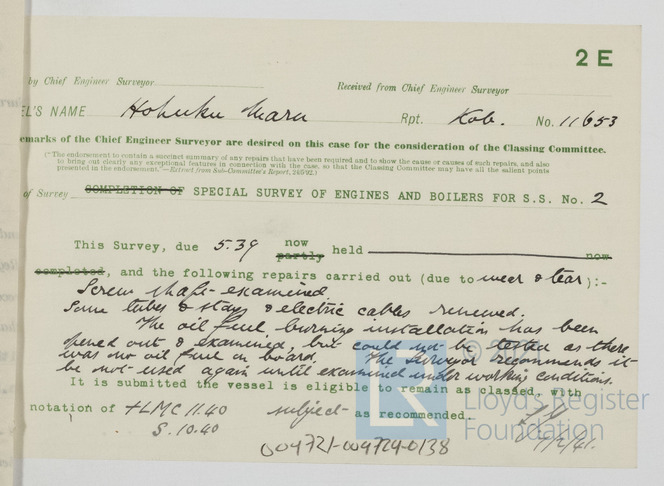 2 E
by Chief Engineer Surveyor
Received from Chief Engineer Surveyor
EL'S NAME Hokuku Maru Rpt. Kob. No. 11653
emarks of the Chief Engineer Surveyor are desired on this case for the consideration of the Classing Committee.
("The endorsement to contain a succinct summary of any repairs that have been required and to show the cause or causes of such repairs, and also
to bring out clearly any exceptional features in connection with the case, so that the Classing Committee may have all the salient points
presented in the endorsement."—Extract from Sub-Committee's Report, 24/5/92.)
of Survey COMPLETION OF SPECIAL SURVEY OF ENGINES AND BOILERS FOR S.S. No. 2
This Survey, due 5.39 now partly held now
completed, and the following repairs carried out (due to wear & tear):-
Screw shaft examined
Some tubes & stays & electric cables renewed.
The oil fuel burning installation has been
opened out & examined, but could not be tested as there
was no oil fuel on board. The Surveyor recommends it
be not used again until examined under working conditions.
It is submitted the vessel is eligible to remain as classed, with
notation of +LMC 11.40 subject as recommended.
S. 10.40
009721-009729-0138
Lloyd's Register
Foundation